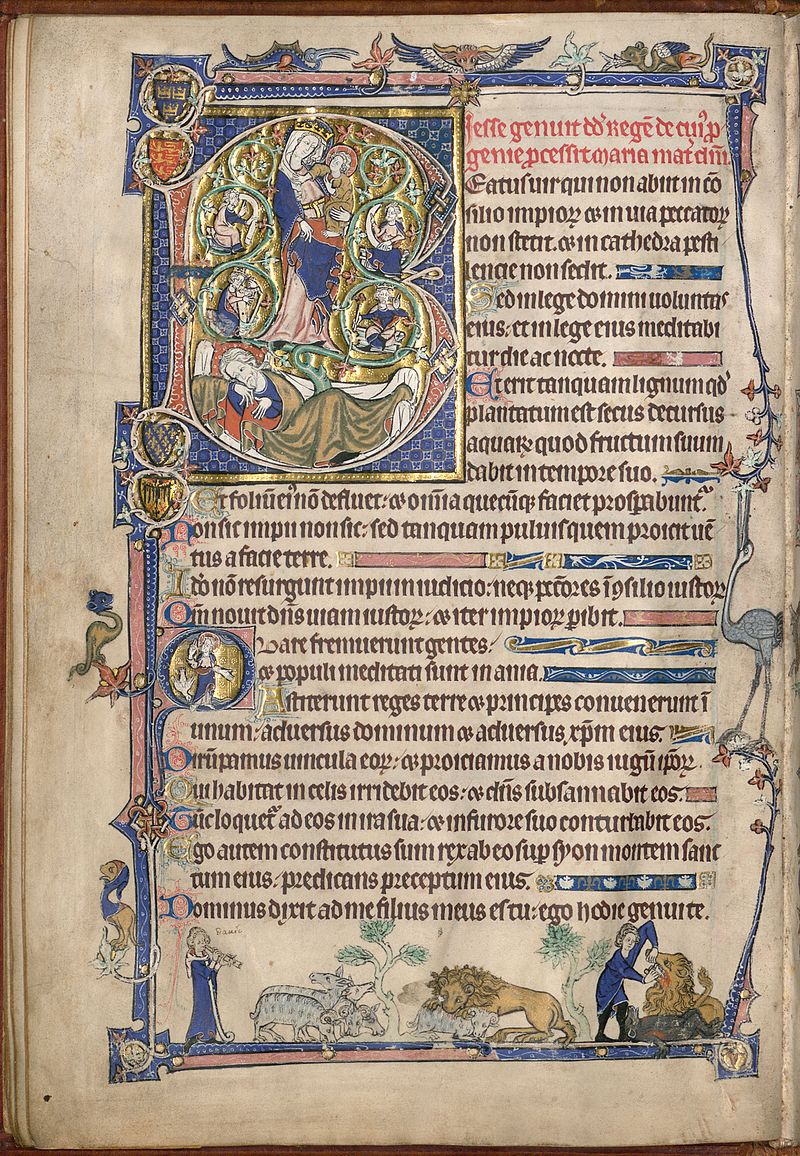 Iesse genuit dd̄ Regē de cui' p
genie p̱cessit Maria mat' dnī
Beatus uir qui non abiit in cō
silio impioꝝ ⁊ in uia peccatoꝝ
non stetit. ⁊ in cathedra pesti
lencie non sedit.
Sed in lege domini uoluntas
eius: et in lege eius meditabi
tur die ac nocte.
Et erit tanquam lignum qd'
plantatum est secus decursus
aquaꝝ quod fructum suum
dabit in tempore suo.
Et foliū ei' nō defluet: ⁊ om̄ia quecūq̨ faciet prosp̱abunt'.
Non sic impii non sic: sed tanquam puluis quem proicit uē
tus a facie terre.
Ido nō resurgunt impii in iudicio: neq̨ pctōres ī ꝯsilio iustoꝝ
Qm̄ nouit dn̄s uiam iustoꝝ: ⁊ iter impioꝝ p̱ibit.
Quare fremuerunt gentes:
⁊ populi meditati sunt inania.
Astiterunt reges terre ⁊ principes conuenerunt ī
unum: aduersus dominum ⁊ aduersus xp̄m eius.
Dirūpamus uincula eoꝝ: ⁊ proiciamus a nobis iugū ip̄oꝝ.
Qui habitat in celis irridebit eos: ⁊ dn̄s subsannabit eos.
Tūc loquet' ad eos in ira sua: ⁊ in furore suo conturbabit eos.
Ego autem constitutus sum rex ab eo sup̱ syon montem sanc
tum eius: predicans preceptum eius.
Dominus dixit ad me filius meus es tu: ego hodie genui te.
Dauid